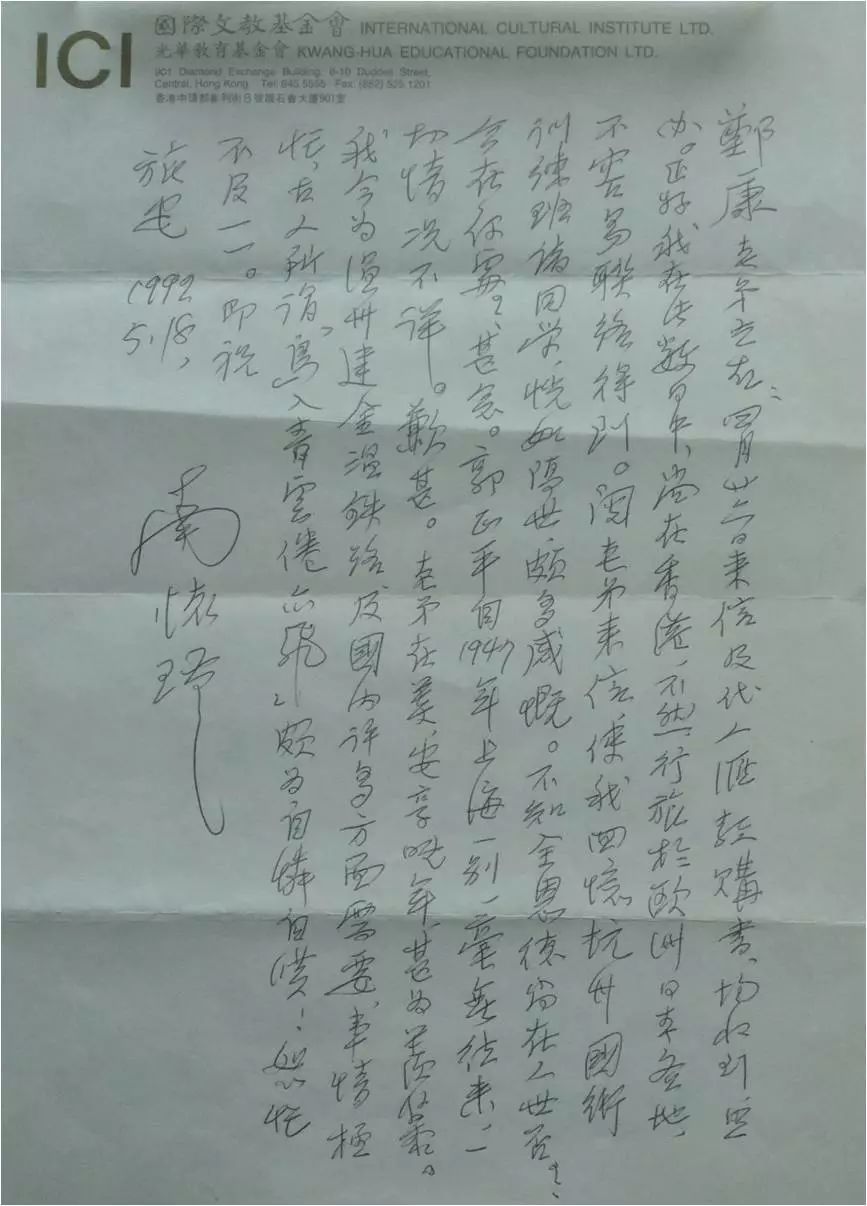 ICI
國際文教基金會 INTERNATIONAL CULTURAL INSTITUTE LTD.
光華教育基金會 KWANG-HUA EDUCATIONAL FOUNDATION LTD.
901 Diamond Exchange Building, 8-10 Duddell Street,
Central, Hong Kong Tel: 845 5555 Fax: (852) 525 1201
香港中環都爹利街8號鑽石會大廈901室
鄭康老弟左右：四月廿六日來信及代人匯款購書、均收到、並
办。正好我在此數日中、尚在香港、不然、行旅於歐洲日本各地、
不容易聯絡得到。閱老弟來信、使我回憶杭州國術
訓練班諸同学、恍如隔世、頗多感慨。不知全恩德尚在人世否！
今在何處！甚念。郭正平自1947年上海一别、一毫無往來、一
切情况不詳。歉甚。老弟在美、安享晚年、甚為羨慕。
我今為温州建金温鉄路及國内許多方面需要、事情極
忙、古人所謂「鳥入青雲倦亦飛」頗為自憐自笑！匆忙
不及一一。即祝
旅安 1992
5.18、
南懷瑾